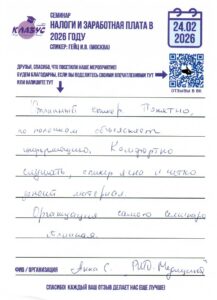 КЛАЗУС
СЕМИНАР
НАЛОГИ И ЗАРАБОТНАЯ ПЛАТА В
2026 ГОДУ
СПИКЕР: ГЕЙЦ И.В. (МОСКВА)
24.02
2026
ДРУЗЬЯ, СПАСИБО, ЧТО ПОСЕТИЛИ НАШЕ МЕРОПРИЯТИЕ!
БУДЕМ БЛАГОДАРНЫ, ЕСЛИ ВЫ ПОДЕЛИТЕСЬ СВОИМИ ВПЕЧАТЛЕНИЯМИ ТУТ
ИЛИ НАПИШИТЕ ТУТ
ОТЗЫВЫ В ВК
Отличный спикер Понятно,
по полочкам объясняет
информацию. Комфортно
слушать, спикер ясно и четко
доносит материал.
Организация самого семинара
отличная.
ФИО / ОРГАНИЗАЦИЯ
Анна С.
СПАСИБО! КАЖДЫЙ ВАШ ОТЗЫВ ДЕЛАЕТ НАС ЕЩЕ ЛУЧШЕ!